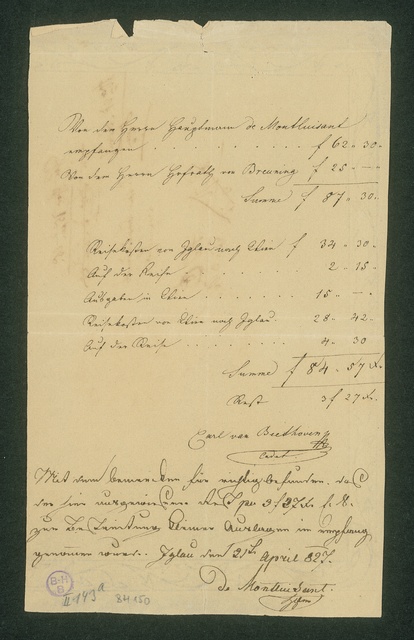 Von dem Herrn Hauptmann de Montluisant
empfangen . . . . . . . . f 62 " 30 "
Von dem Herrn Hofrath von Breuning f 25 " —
Summe f 87 " 30 "
Reisekosten von Iglau nach Wien f 34 " 30 "
Auf der Reise . . . . . . 2 " 15 "
Ausgaben in Wien . . . . . . 15 " — "
Reisekosten von Wien nach Iglau . 28 " 42 "
Auf der Reise . . . . . . 4 " 30
Summe f 84 " 57 Xr.
Rest 3 f 27 Xr.
Carl van Beethoven
Cadet
Mit dem bemerken für richtig befunden, daß
der hier ausgewiesene Rest pr 3 f 27 Xr
zur Bestreitung kleiner Auslagen in empfang
genomen wurde. Iglau den 21t April 827.
De Montluisant
B-H
B
II-193a 84150